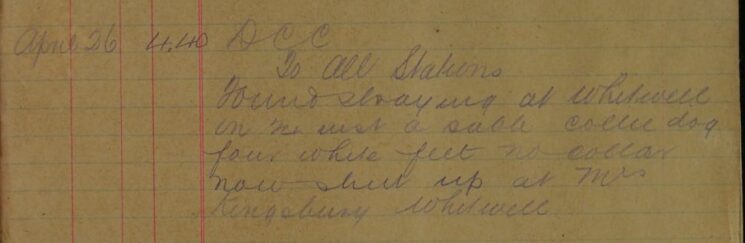 April 26 4.40 D C C
To All Stations
Found straying at Whitwell
on inst a sable collie dog
four white feet no collar
now shut up at Mrs
Kingsbury Whitwell